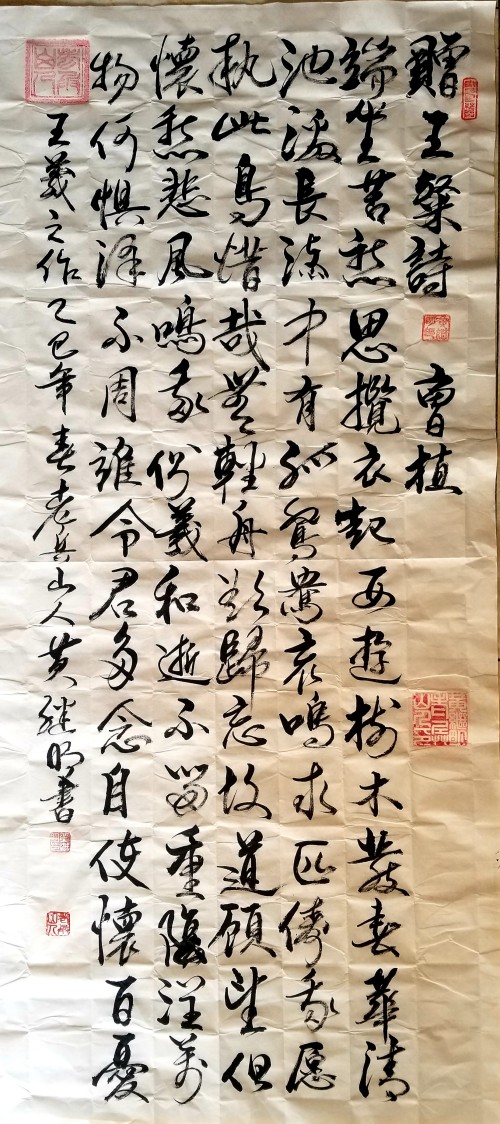 贈王粲詩 曹植
端坐苦愁思攬衣起西遊樹木發春華清
池激長流中有孤鴛鴦哀鳴求匹儔我愿
執此鳥惜哉無輕舟欲歸忘故道顧望但
懷愁悲風鳴我側義和逝不留重陰潤萬
物何懼澤不周誰令君多念自使懷百憂
王義之作乙巳年春老兵山人黄継明書